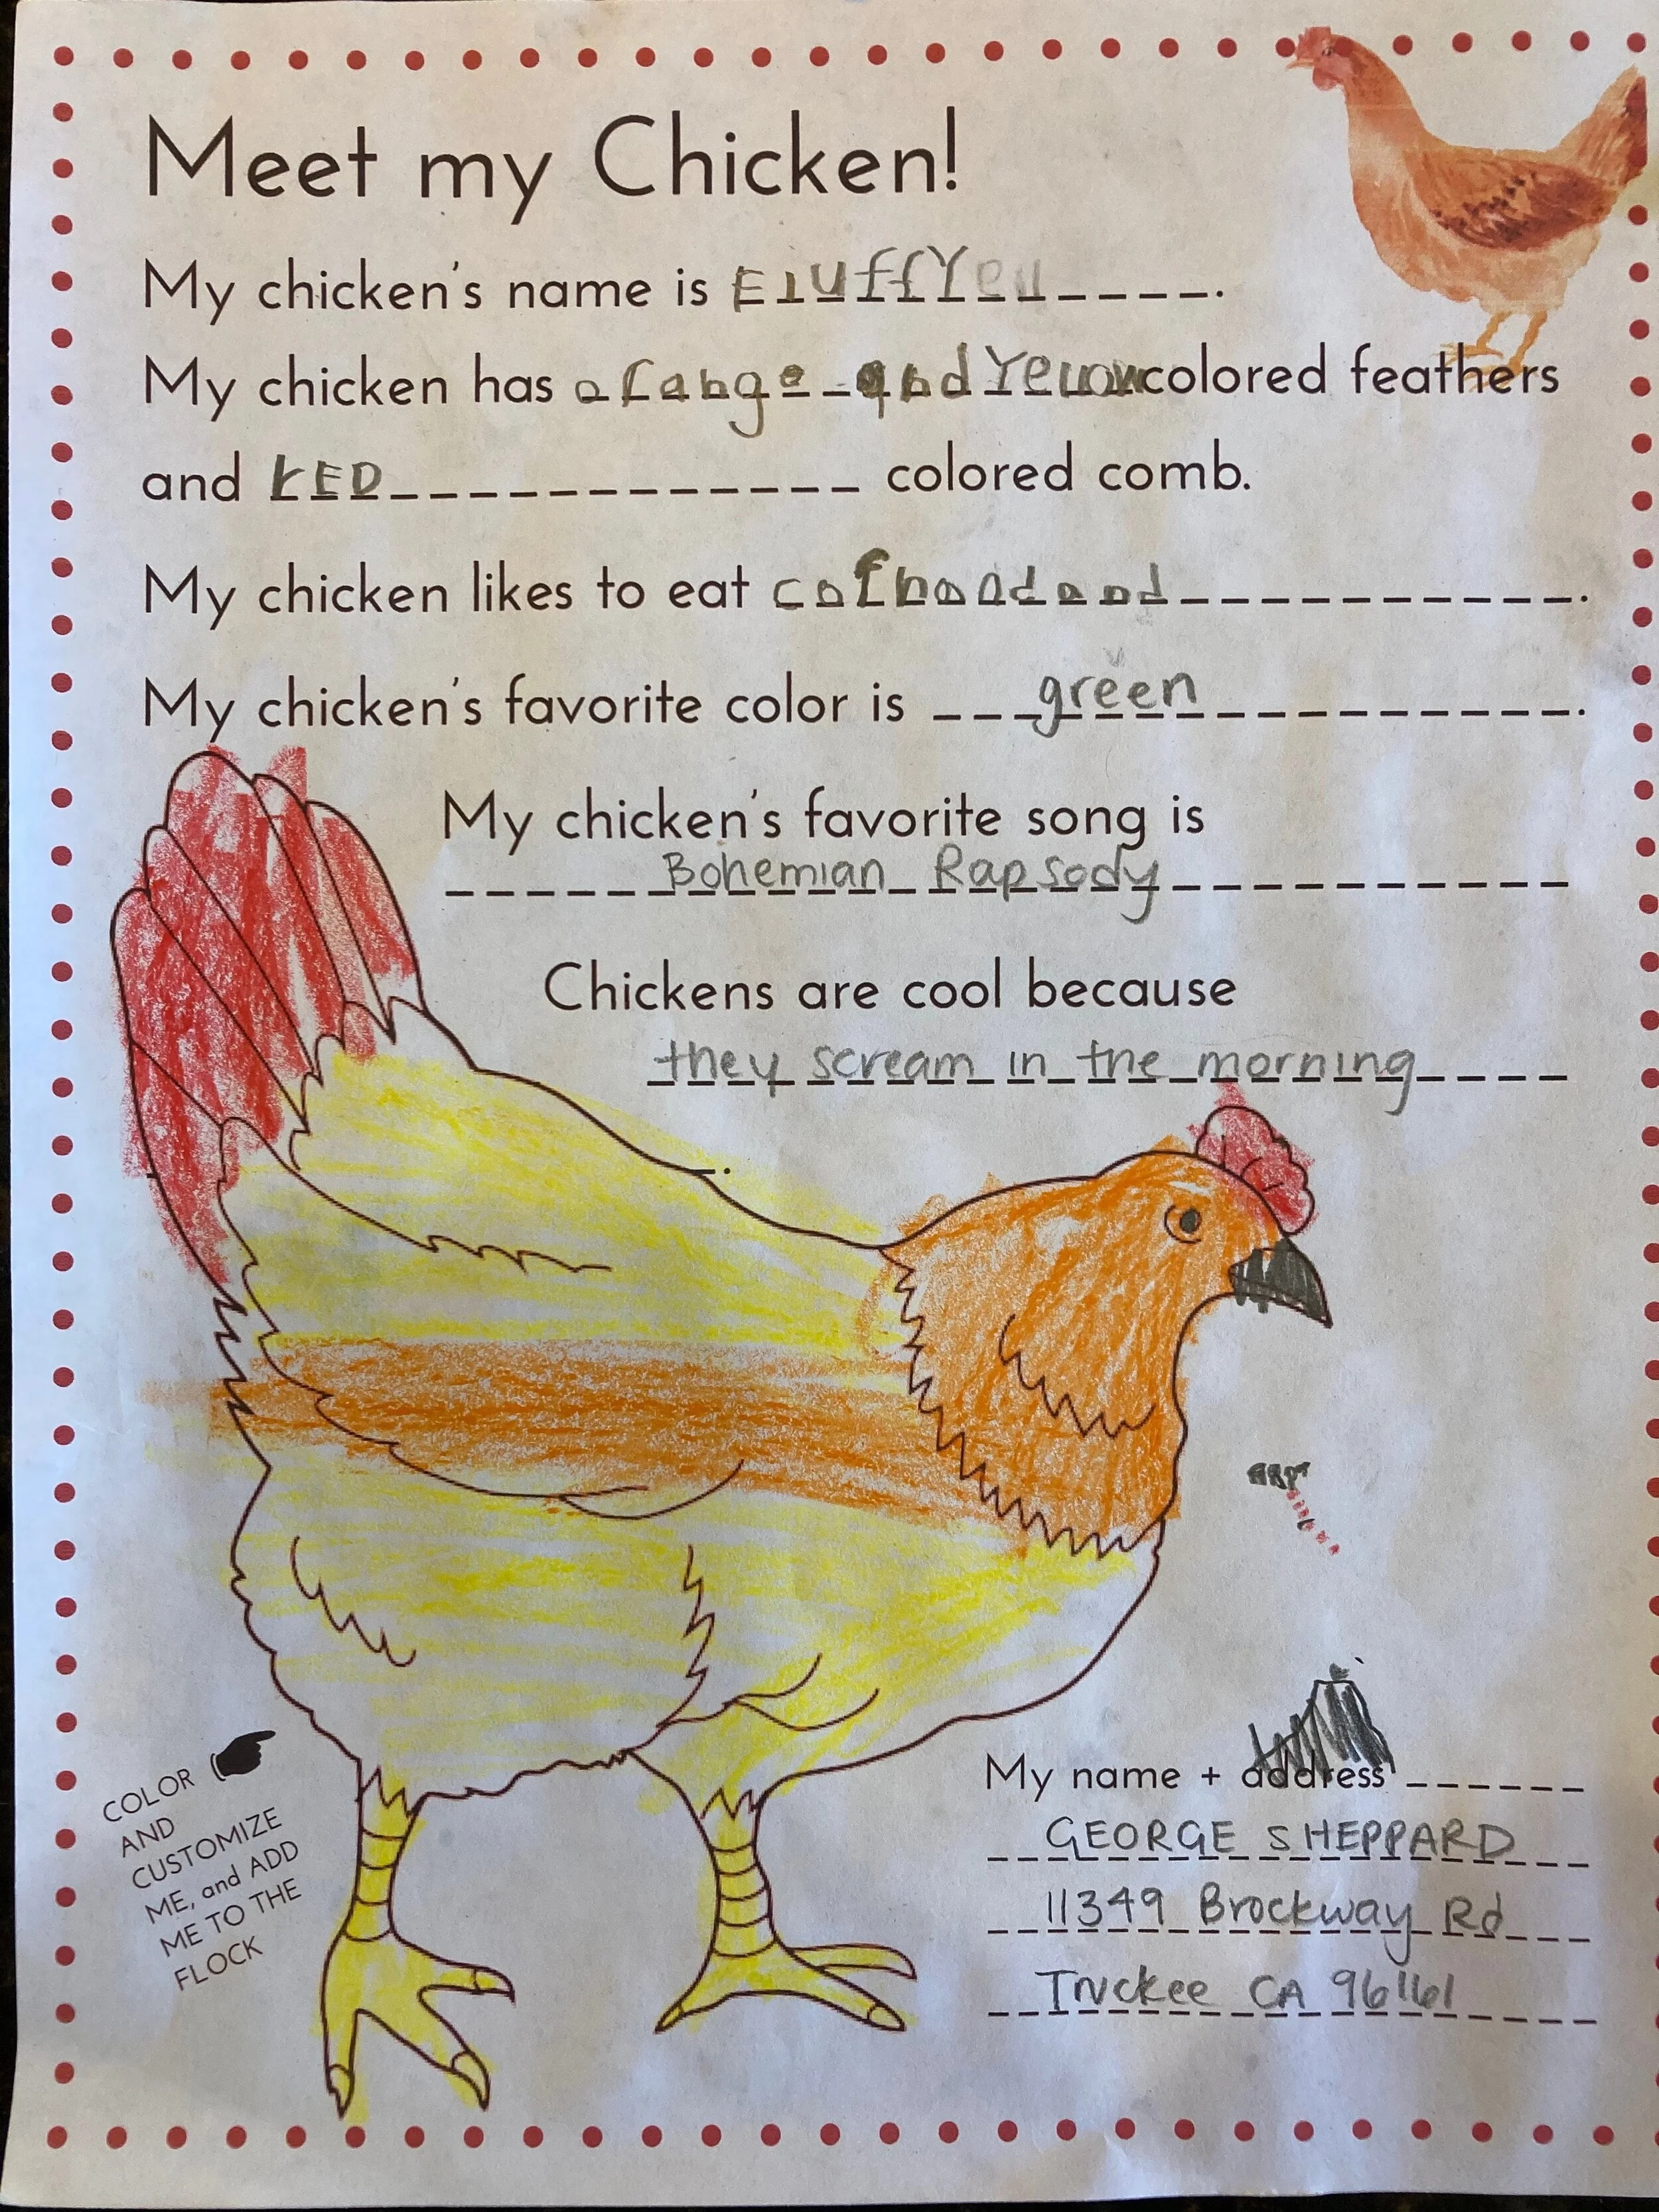 Meet my Chicken!
My chicken's name is FluffY
My chicken has orange and Yellow colored feathers
and rED colored comb.
My chicken likes to eat
My chicken's favorite color is green.
My chicken's favorite song is
Bohemian Rapsody
Chickens are cool because
they scream in the morning
.
COLOR
AND
CUSTOMIZE
ME, and ADD
ME TO THE
FLOCK
My name + address
GEORGE SHEPPARD
11349 Brockway Rd
Truckee CA 96161